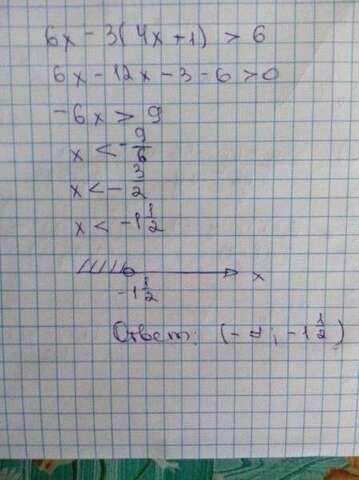 6x - 3(4x + 1) > 6
6x - 12x - 3 - 6 > 0
-6x > 9
x < -9/6
x < -3/2
x < -1 1/2
x
-1 1/2
Ответ: (-∞; -1 1/2)